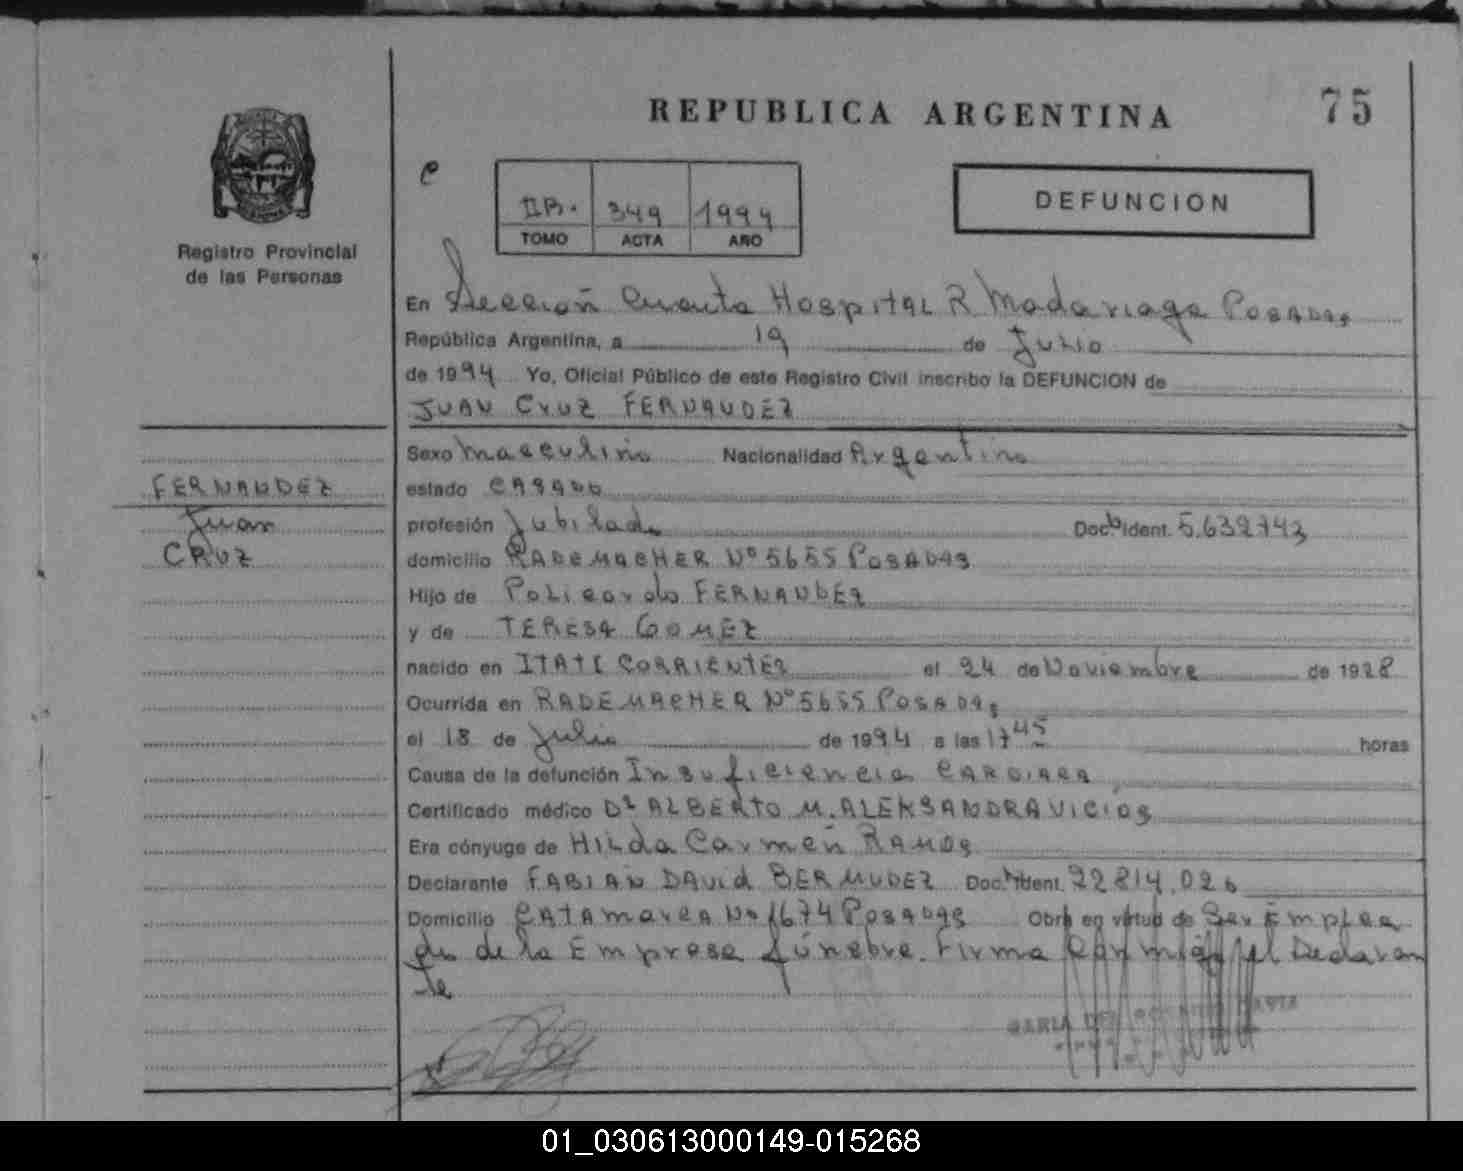 REPUBLICA ARGENTINA
75
Registro Provincial
de las Personas
e
IIB. 349 1994
TOMO ACTA AÑO
DEFUNCION
En Sección Cuarta Hospital R Madariaga Posadas
República Argentina, a 19 de Julio
de 1994 Yo, Oficial Público de este Registro Civil inscribo la DEFUNCION de
JUAN Cruz FERNANDEZ
FERNANDEZ
Juan
CRUZ
Sexo Masculino Nacionalidad Argentino
estado CASADO
profesión Jubilado Doc. Ident. 5.632743
domicilio RADEMACHER Nº 5655 POSADAS
Hijo de Policardo FERNANDEZ
y de TERESA GOMEZ
nacido en ITATI CORRIENTES el 24 de Noviembre de 1928
Ocurrida en RADEMACHER Nº 5655 POSADAS
el 18 de Julio de 1994 a las 17 45 horas
Causa de la defunción Insuficiencia CARDIACA
Certificado médico Dr ALBERTO M. ALEKSANDRAVICIOS
Era cónyuge de HILda Carmen RAMOS
Declarante FABIAN DAVId BERMUDEZ Doc. Ident. 22814.026
Domicilio CATAMARCA Nº 1674 POSADAS Obra en virtud de Ser Emplea
do de la Empresa fúnebre. Firma Con migo el Declaran
te
MARIA DEL
01_030613000149-015268